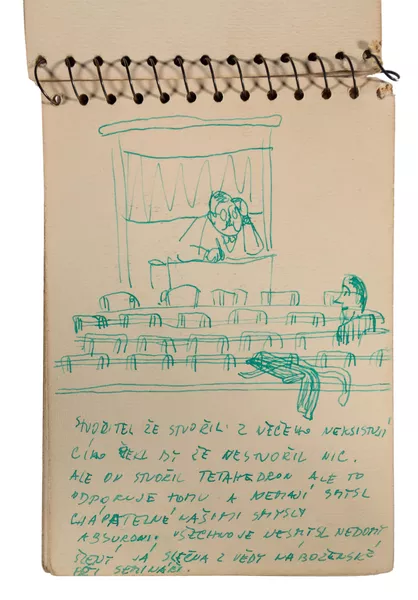 STVOŘITEL ŽE STVOŘIL Z NĚČEHO NEEXISTUJÍ
CÍHO ŘEKL BY ŽE NESTVOŘIL NIC.
ALE ON STVOŘIL TETAHEDRON ALE TO
ODPORUJE TOMU A NEMAJÍ SMYSL
CHÁPATELNÉ NAŠIMI SMYSLY
ABSURDNÍ. VŠECHNO JE NESMYSL NEDOMY
ŠLENÝ JÁ SLEČNA Z VĚDY NÁBOŽENSKÉ
SEMINÁŘI.